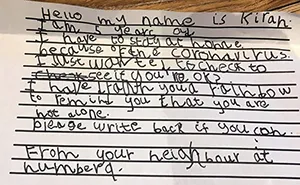 Hello my name is Kirah.
I am 5 years old
I have to stay at home
because of the coronavirus.
I Just wanted to check to
see if you're ok?
I have painth you a rainbow
to remind you that you are
not alone.
please write back if you can.
From your neighbour at
number 9.